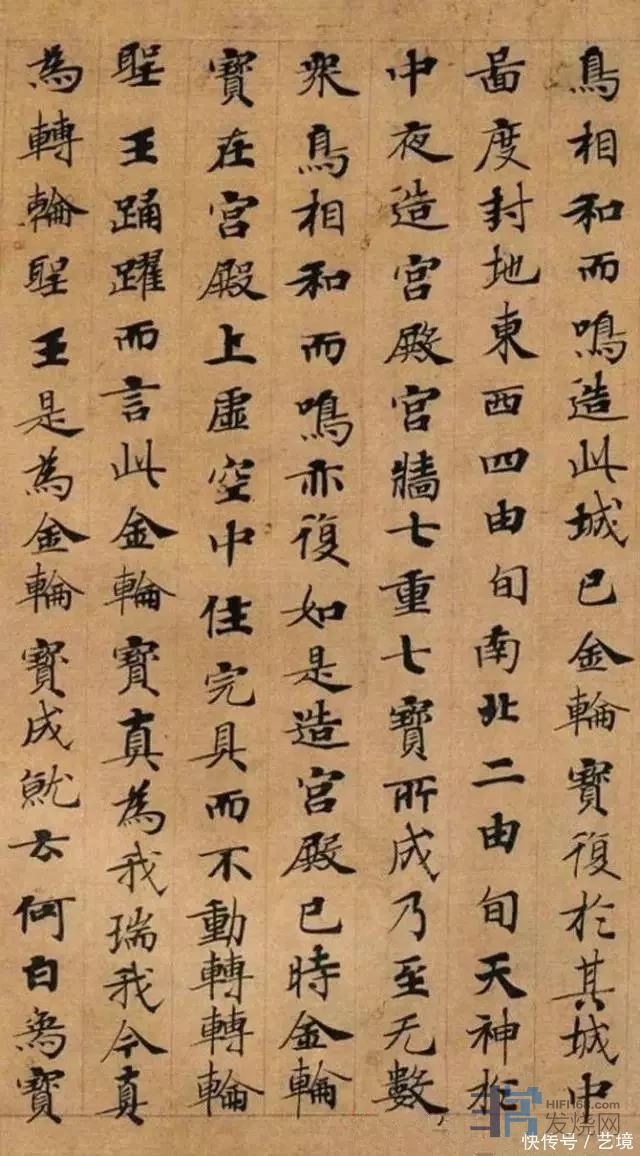 鳥相和而鳴造此城已金輪寶復於其城中
啚度封地東西四由旬南北二由旬天神於
中夜造宮殿宮牆七重七寶所成乃至无數
衆鳥相和而鳴亦復如是造宮殿已時金輪
寶在宮殿上虛空中住完具而不動轉轉輪
聖王踊躍而言此金輪寶真為我瑞我今真
為轉輪聖王是為金輪寶成就云何白象寶
HIFI168.com
发烧网
快传号/艺境